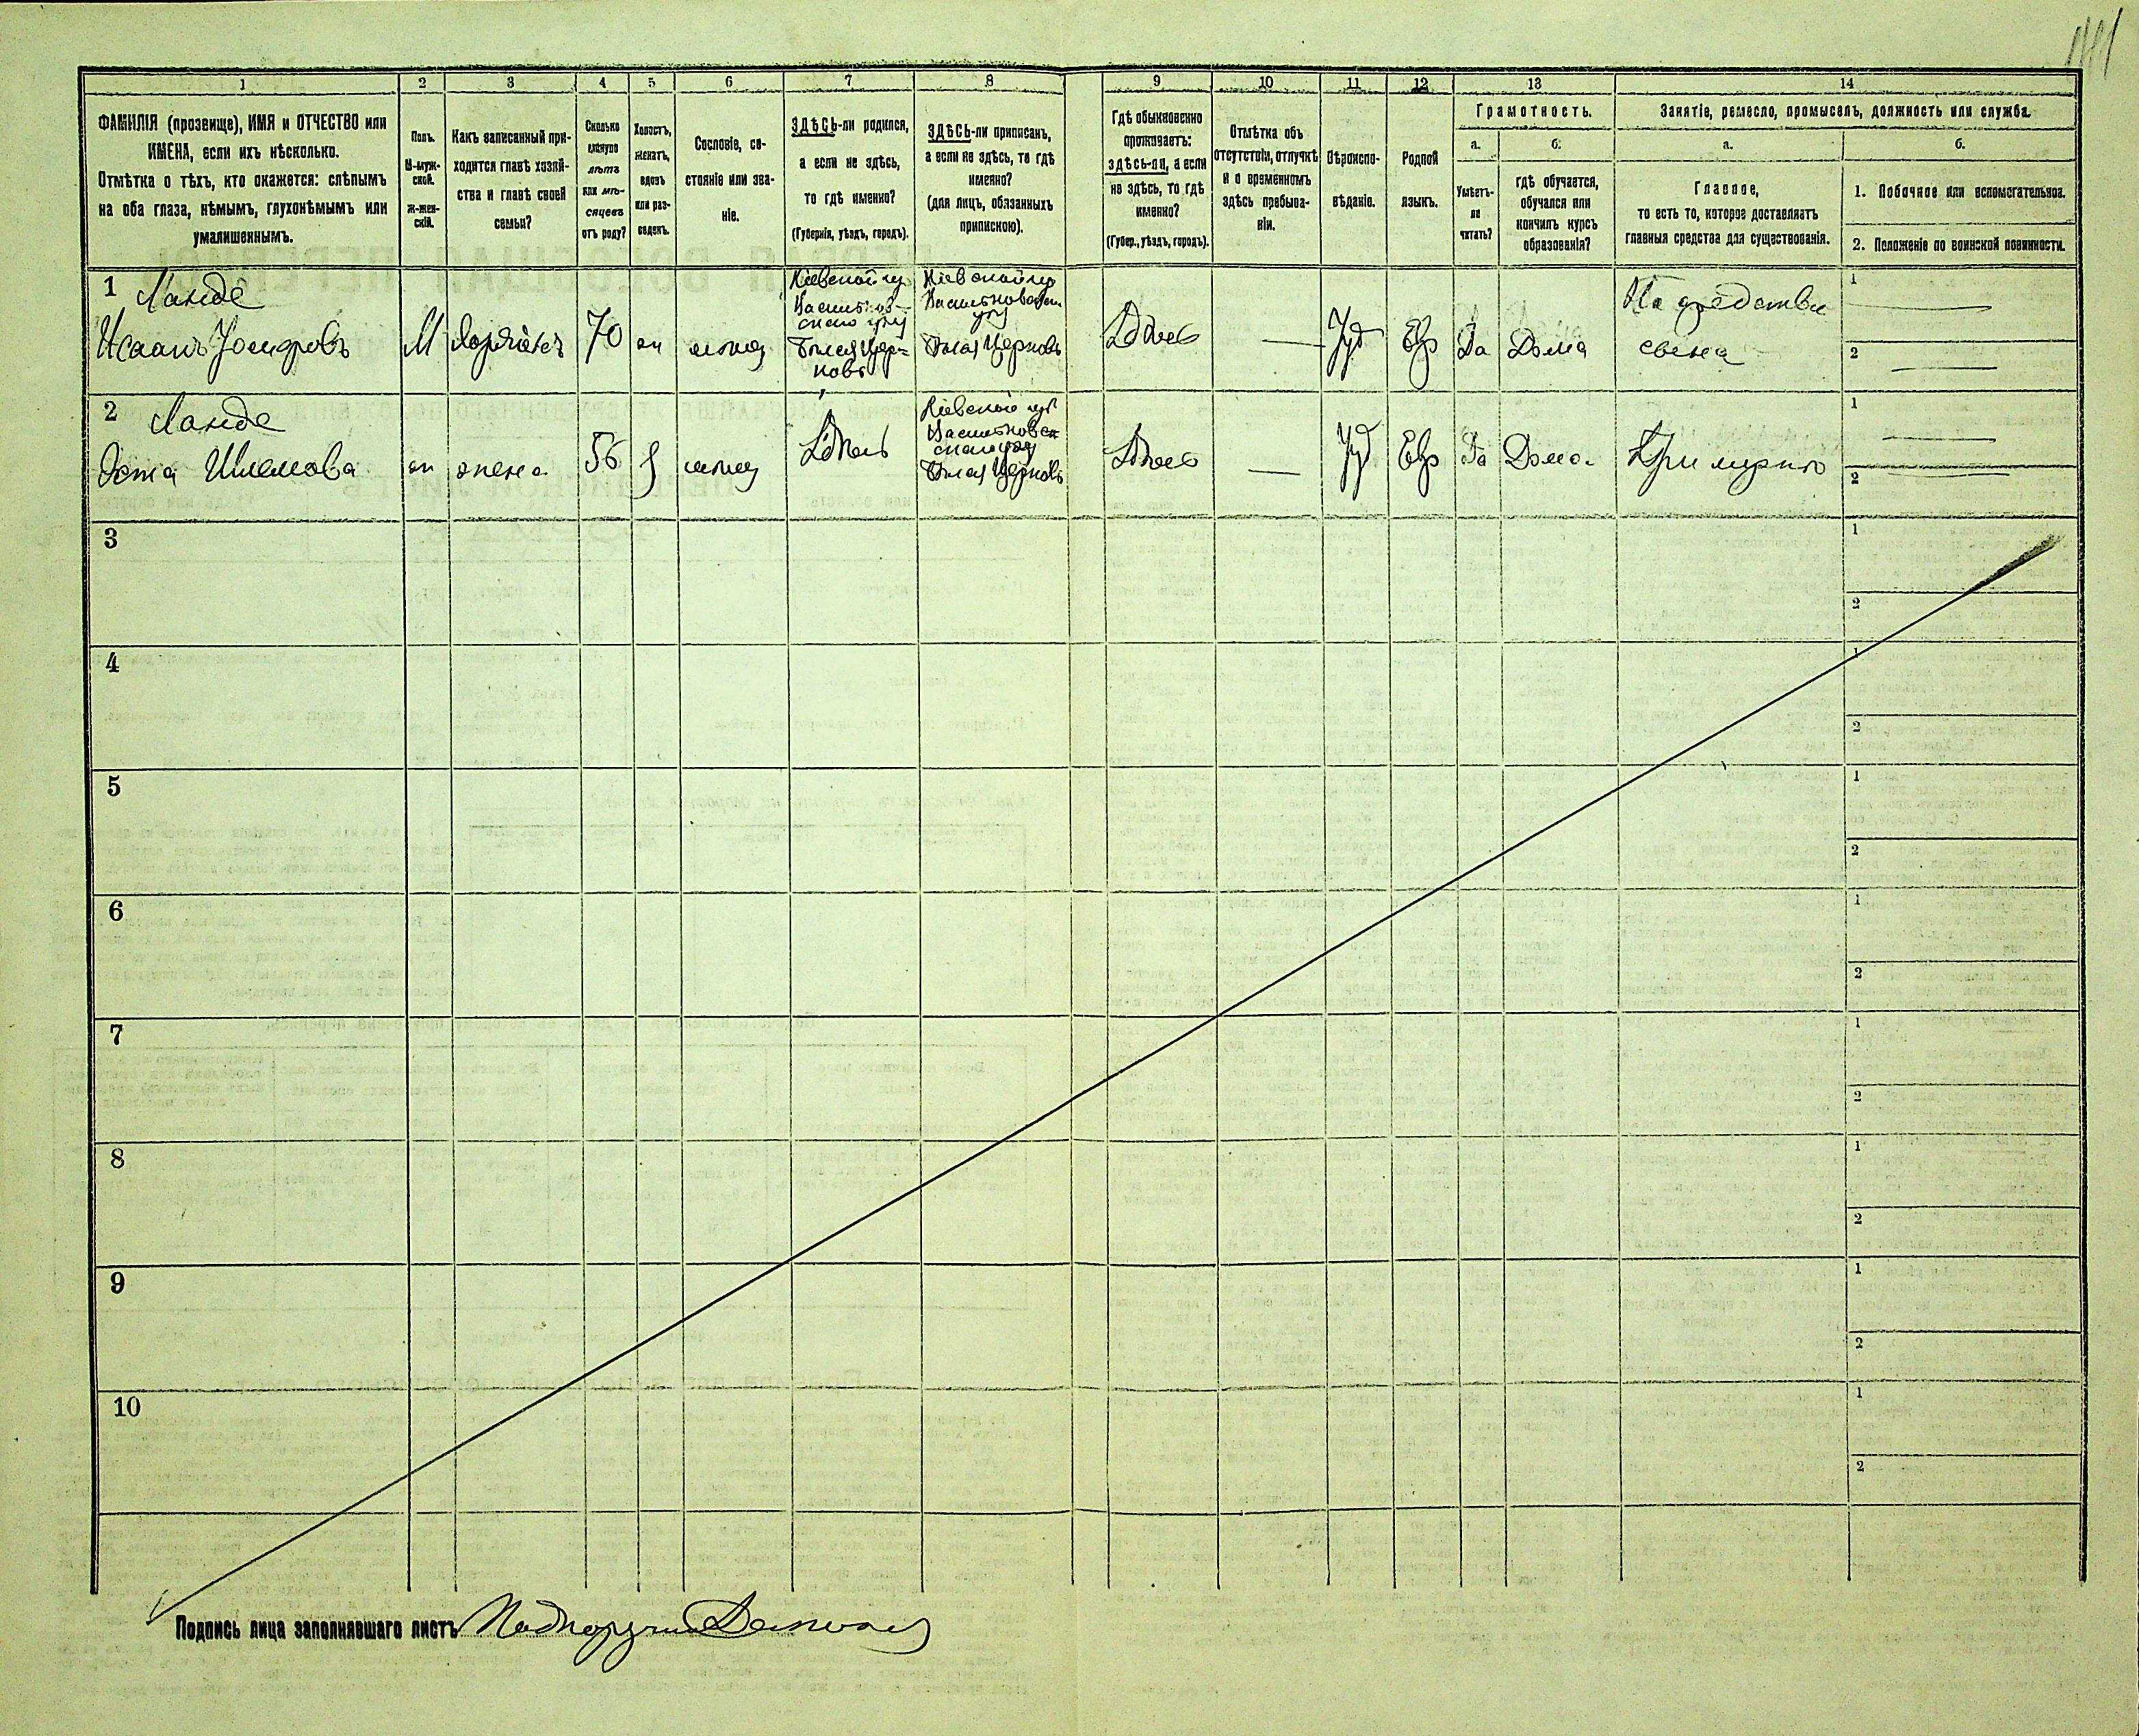 1 2 3 4 5 6 7 8 9 10 11 12 13 14
ФАМИЛІЯ (прозвище), ИМЯ и ОТЧЕСТВО или
ИМЕНА, если ихъ нѣсколько.
Отмѣтка о тѣхъ, кто окажется: слѣпымъ
на оба глаза, нѣмымъ, глухонѣмымъ или
умалишеннымъ.
Полъ.
М-муж-
ской.
ж-жен-
скій.
Какъ записанный при-
ходится главѣ хозяй-
ства и главѣ своей
семьи?
Сколько
минуло
лѣтъ
или мѣ-
сяцевъ
отъ роду?
Холостъ,
женатъ,
вдовъ
или раз-
веденъ.
Сословіе, со-
стояніе или зва-
ніе.
ЗДѢСЬ-ли родился,
а если не здѣсь,
то гдѣ именно?
(Губернія, уѣздъ, городъ).
ЗДѢСЬ-ли приписанъ,
а если не здѣсь, то гдѣ
именно?
(для лицъ, обязанныхъ
припискою).
Гдѣ обыкновенно
проживаетъ:
здѣсь-ли, а если
не здѣсь, то гдѣ
именно?
(Губер., уѣздъ, городъ).
Отмѣтка объ
отсутствіи, отлучкѣ
и о временномъ
здѣсь пребыва-
ніи.
Вѣроиспо-
вѣданіе.
Родной
языкъ.
Грамотность.
а.
Умѣетъ-
ли
читать?
б.
гдѣ обучается,
обучался или
кончилъ курсъ
образованія?
Занятіе, ремесло, промыселъ, должность или служба.
а.
Главное,
то есть то, которое доставляетъ
главныя средства для существованія.
б.
1. Побочное или вспомогательное.
2. Положеніе по воинской повинности.
1 Ланде
М 70 Здѣсь Іуд Евр Да Дома
Кіевской губ
Бѣлая Цер=
ковь
Кіевской губ
Бѣлая Церковь
На средства
сына
1
2
2 Ланде
жена 56 Здѣсь Здѣсь Іуд Евр Да Дома При мужѣ
Кіевской губ
Бѣлая Церковь
1
2
3
1
2
4
1
2
5
1
2
6
1
2
7
1
2
8
1
2
9
1
2
10
1
2
Подпись лица заполнявшаго листъ